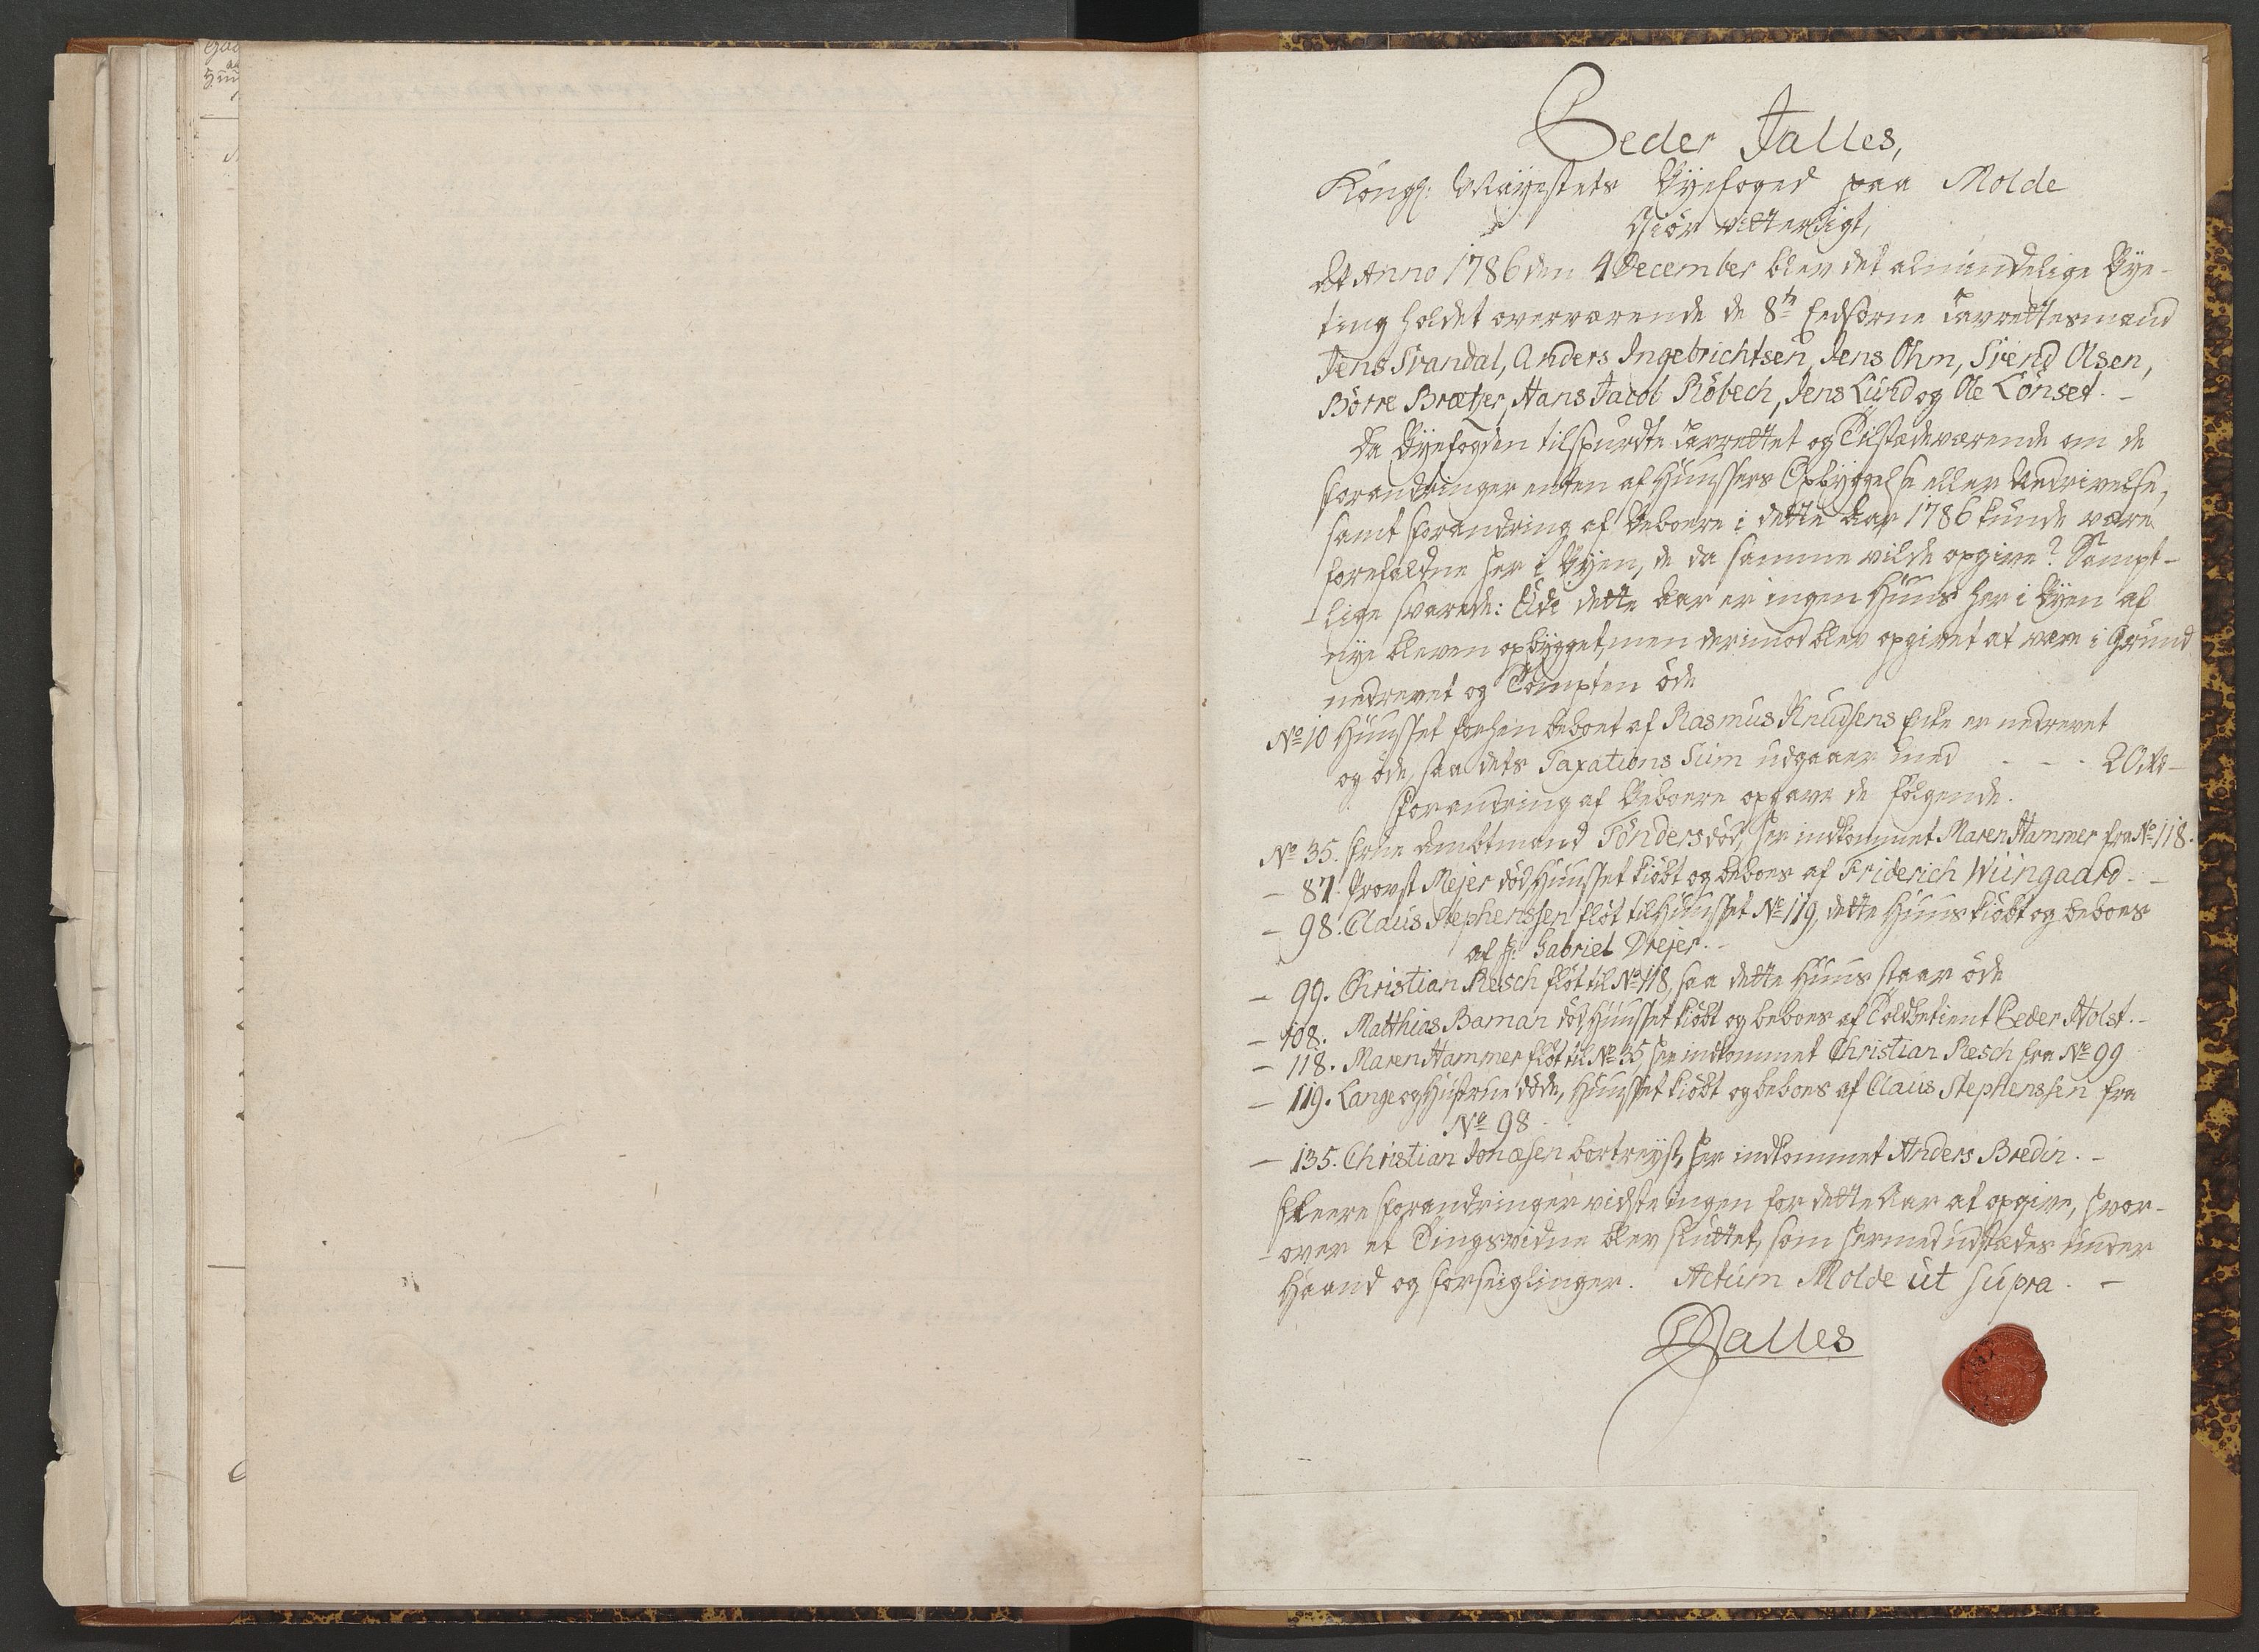 Peder Jalles,
Kongl: Mayestets Byefoged paa Molde
Giör vitterligt,
At Anno 1786 den 4 December blev det almindelige Bye-
ting holdet overværende de 8te Eedsorne Lavrettesmænd
Jens Svandal, Anders Ingebrichtsen, Jens Ohm, Svend Olsen,
Börre Brætzer, Hans Jacob Röbech, Jens Lund og Ole Lönset. -
Da Byefogden tilspurdte Lavrettet og Tilstædeværende om de
forandringer enten af Huussers Opbyggelse eller Nedrivelse,
samt forandring af Beboere i dette Aar 1786 kunde være
forefaldne her i Byen, de da samme vilde opgive? Sampt-
lige svarede: Udi dette Aar er ingen Huus her i Byen af
nye bleven opbygget, men derimod blev opgivet at være i Grund
nedrevet og Tompten öde
No 10 Huusset forhen beboet af Rasmus Knudsens Enke er nedrevet
og öde, saa dets Taxations Sum udgaaer med - - - 20 Rd -
Forandring af Beboere opgave de følgende.
No 35. Frue Ambtmand Tönders död, her indkommet Maren Hammer fra No 118.
- 87. Provst Mejer död, Huusset kiöbt og beboes af Friderich Wiingaard. -
- 98. Claus Stephenssen fløt til Huusset No 119, dette Huus kiöbt og beboes
af Hr: Gabriel Drejer. -
- 99. Christian Resch fløt til No 118, saa dette Huus staar öde
- 108. Matthias Baman död, Huusset kiöbt og beboes af Toldbetient Peder Holst. -
- 118. Maren Hammer fløt til No 35, her indkommet Christian Resch fra No 99
- 119. Lange og Hustrue döde, Huusset kiöbt og beboes af Claus Stephenssen fra
No 98.
- 135. Christian Jonæsen bortreyst, her indkommet Anders Bredin. -
Fleere forandringer vidste ingen for dette Aar at opgive, hvor-
over et Tingsvidne blev sluttet, som hermed udstædes under
Haand og forseiglinger. Actum Molde ut supra. -
PJalles